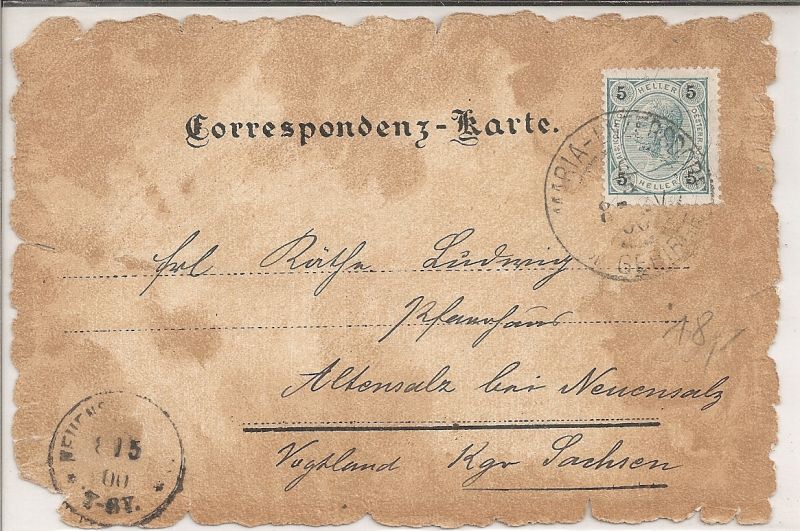 Correspondenz-Karte.
5 HELLER 5
5 HELLER 5
MARIA-
GEBIRGE
Frl Käthe Ludwig
Pfarrhaus
18,-
Altensalz bei Neuensalz
Vogtland Kgr Sachsen
NEUENS
8 5
00
7-8V.